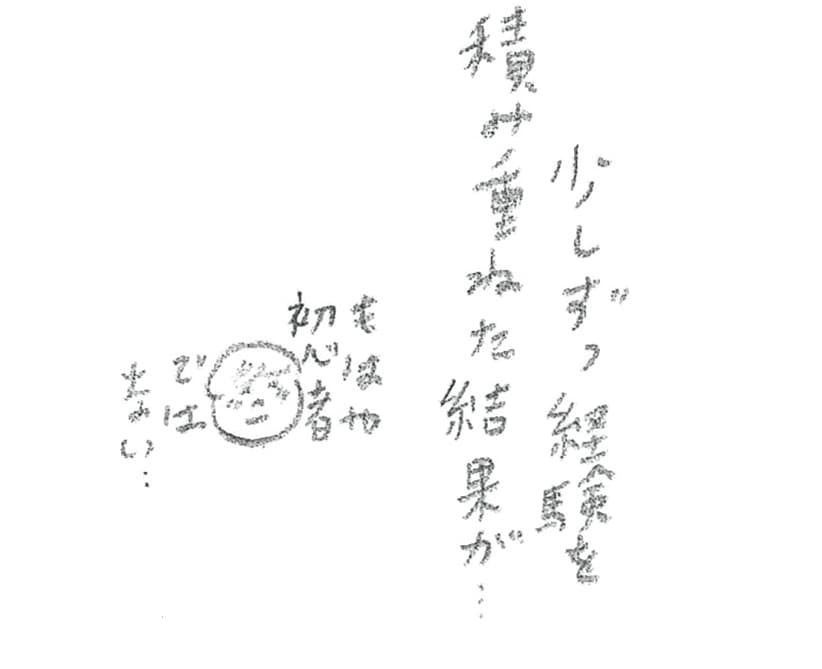 少しずつ経験を
積み重ねた結果が…
もはや
初心者
では
ない…